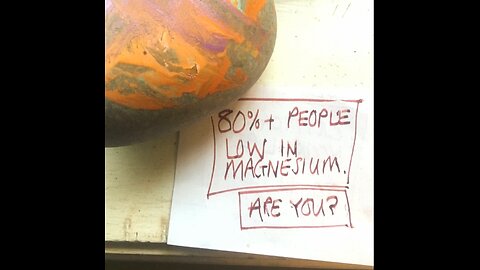 80%+ PEOPLE
LOW IN
MAGNESIUM.
ARE YOU?